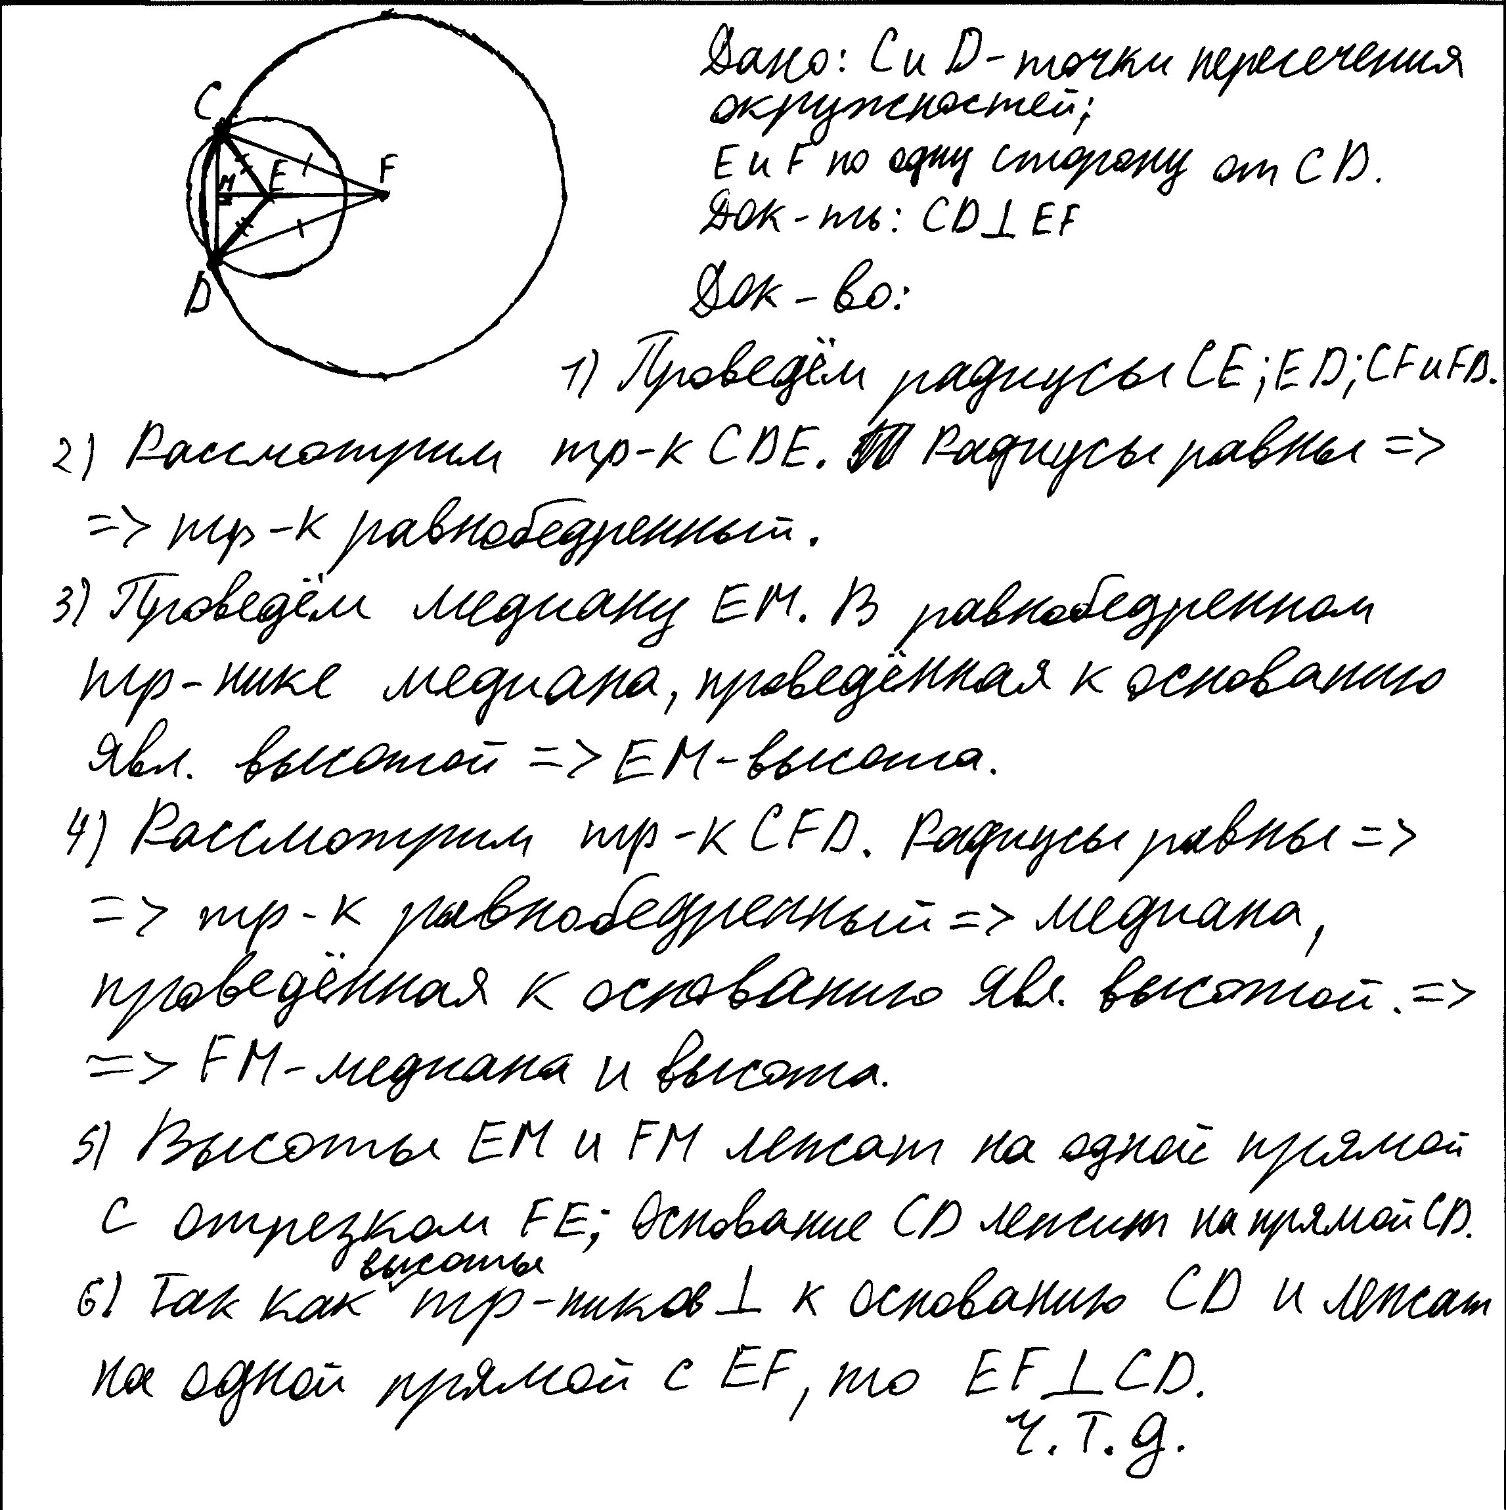 C
M
E
F
D
Дано: C и D - точки пересечения
окружностей;
E и F по одну сторону от CD.
Док-ть: CD⊥EF
Док-во:
1) Проведём радиусы CE; ED; CF и FD.
2) Рассмотрим тр-к CDE. Радиусы равны =>
=> тр-к равнобедренный.
3) Проведём медиану EM. В равнобедренном
тр-нике медиана, проведённая к основанию
явл. высотой => EM-высота.
4) Рассмотрим тр-к CFD. Радиусы равны =>
=> тр-к равнобедренный => медиана,
проведённая к основанию явл. высотой. =>
=> FM-медиана и высота.
5) Высоты EM и FM лежат на одной прямой
с отрезком FE; Основание CD лежит на прямой CD.
6) Так как высоты тр-ников ⊥ к основанию CD и лежат
на одной прямой с EF, то EF⊥CD.
Ч.Т.Д.